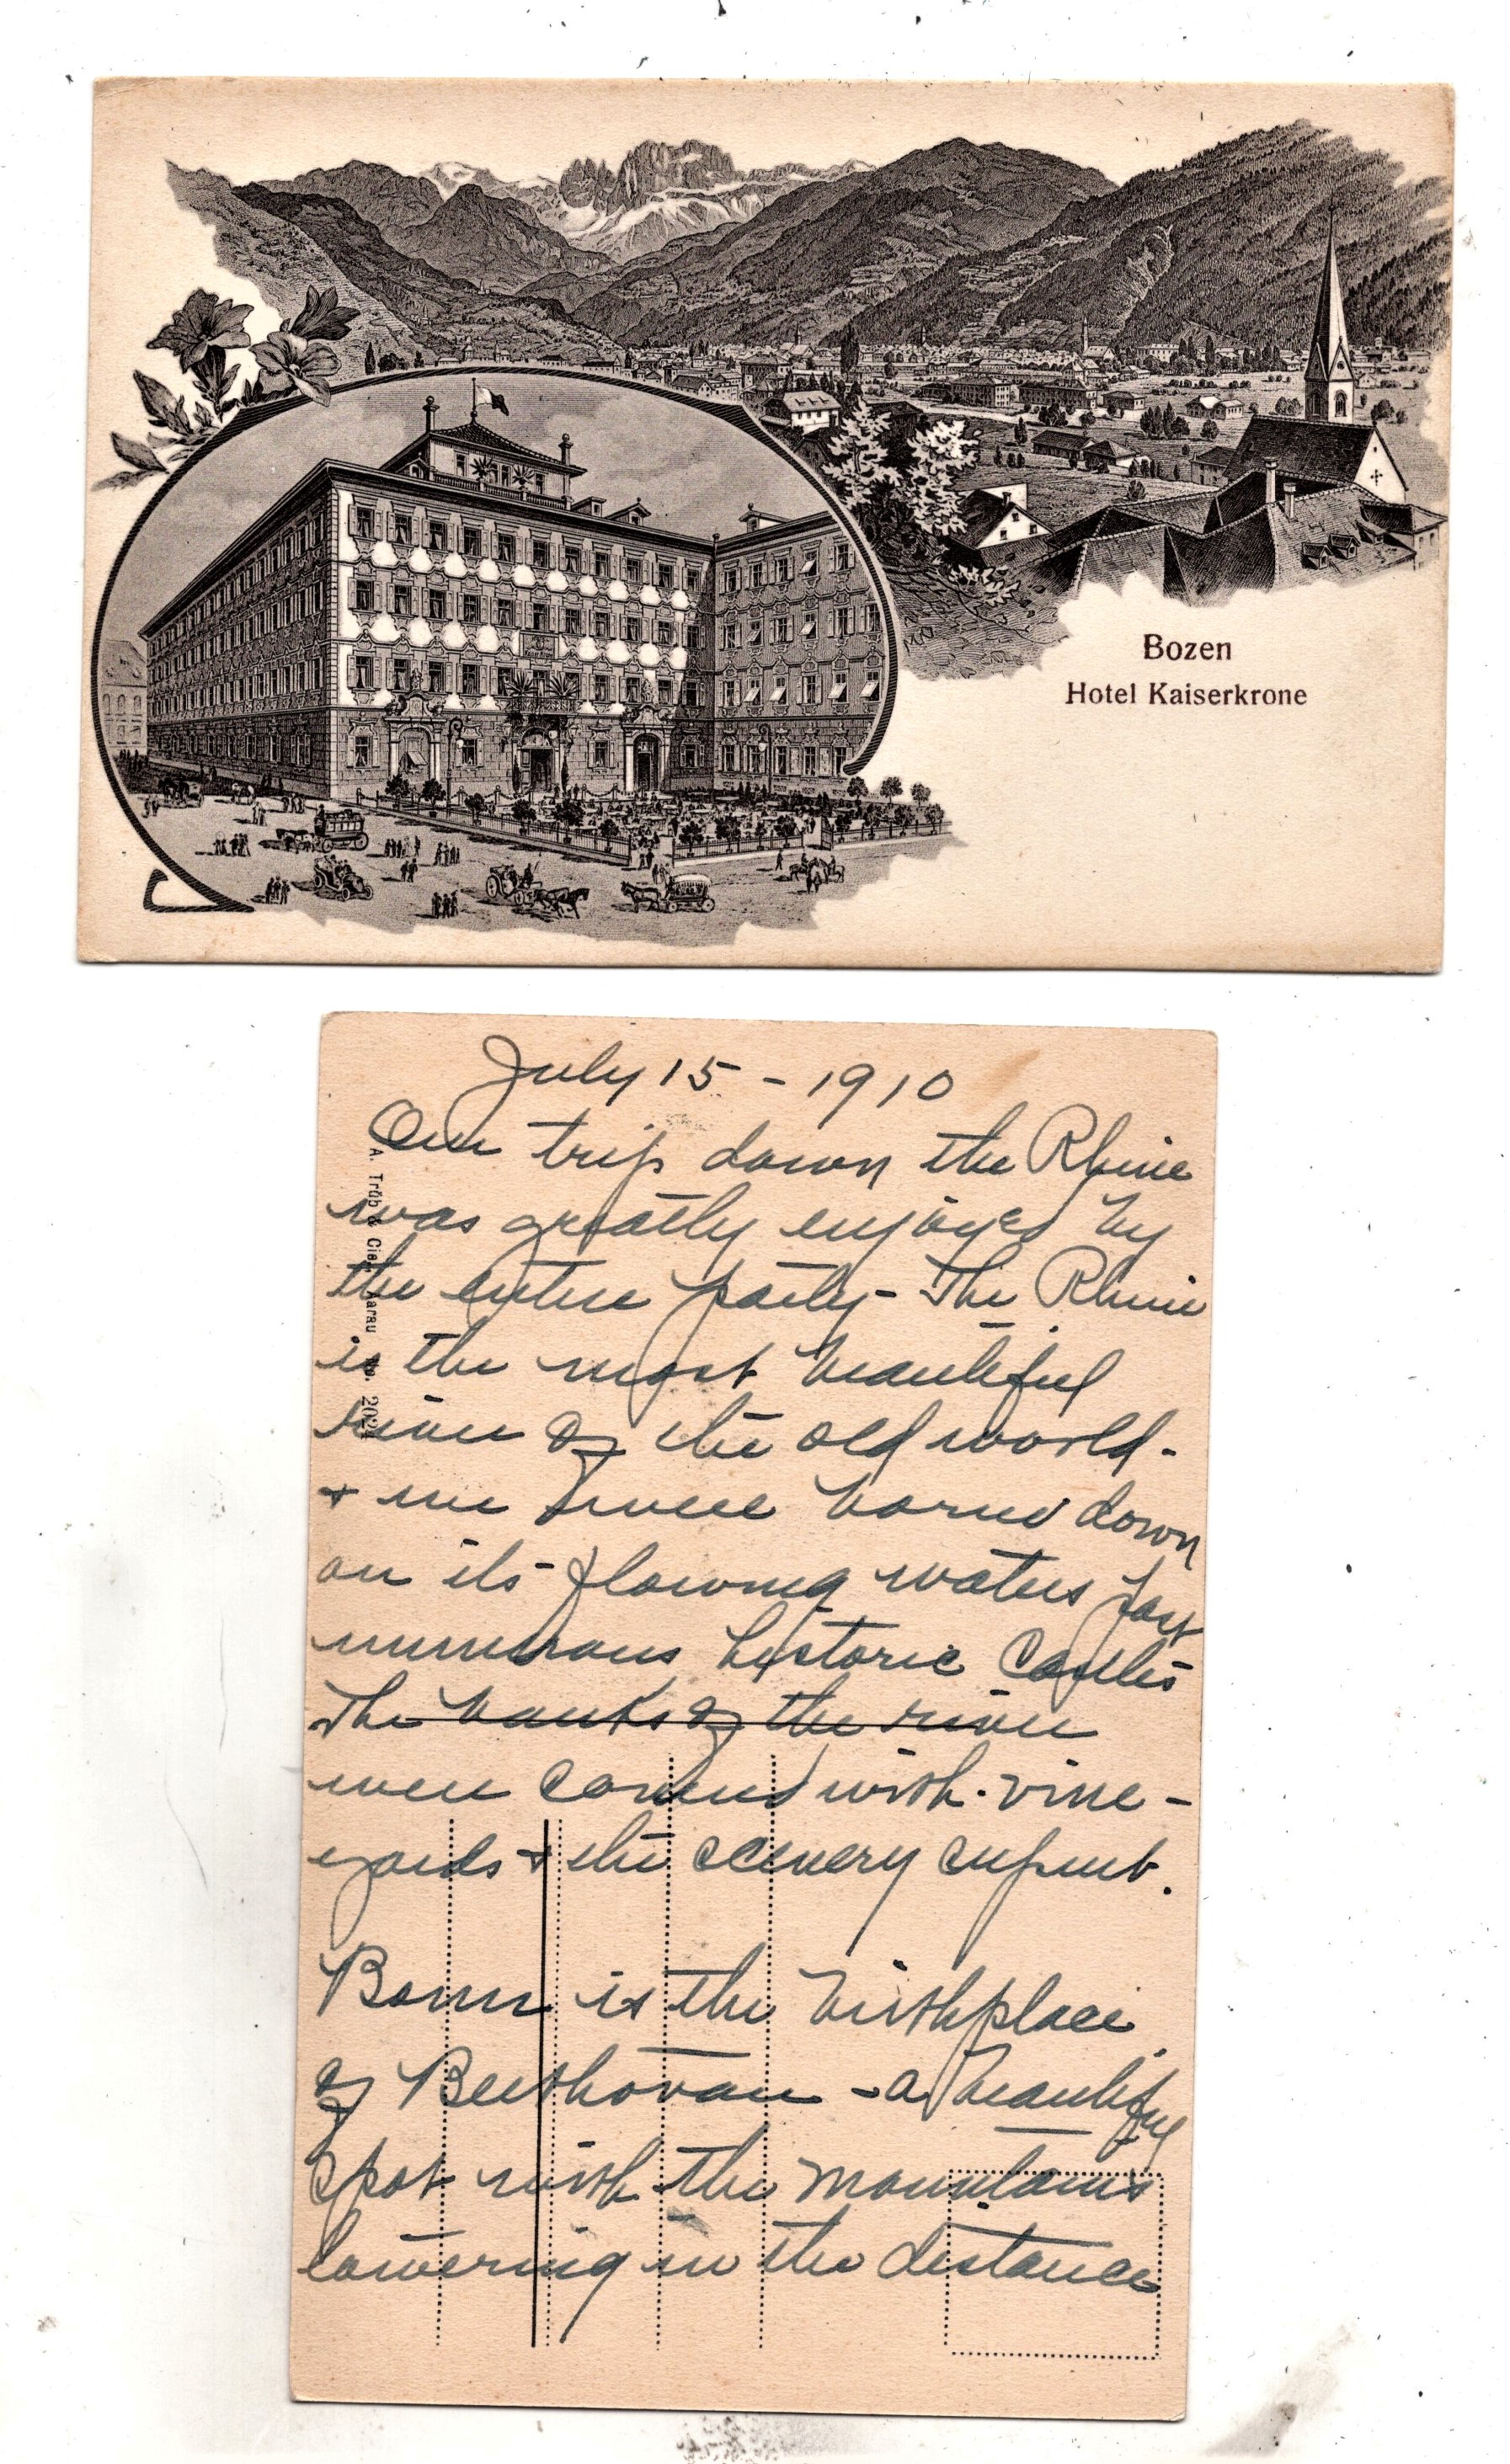 Bozen
Hotel Kaiserkrone
July 15 - 1910
Our trip down the Rhine
was greatly enjoyed by
the entire party - The Rhine
is the most beautiful
river of the old world -
+ we were borne down
on its flowing waters past
numerous historic Castles
The banks of the river
were covered with vine-
yards + the scenery superb.
Bonn is the birthplace
of Beethovan - a beautiful
spot with the mountains
lowering in the distance
A. Trüb & Cie., Aarau No. 2021